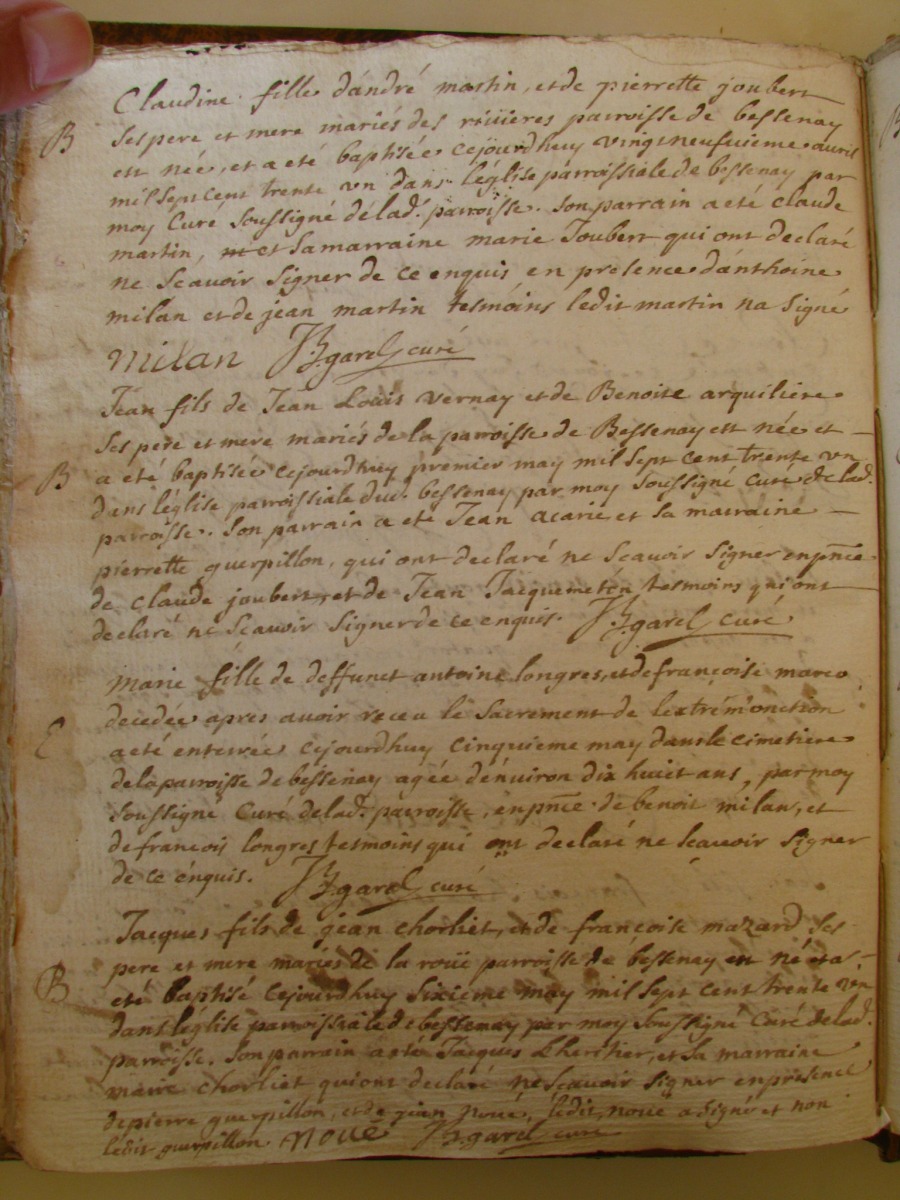 Claudine fille d'andré martin, et de pierrette joubert
B
ses pere et mere mariés des riuiieres parroisse de bessenay
est née, et a eté baptisée cejourdhuy vingtneufuieme auril
mil sept cent trente vn dans l'église parroissiale de bessenay par
moy Curé soussigné de lad. parroisse. Son parrain a eté claude
martin, et sa marraine marie Joubert qui ont declaré
ne scauoir signer de ce enquis en presence d'anthoine
milan et de jean martin tesmoins ledit martin na signé
milan JB garel curé
Jean fils de Jean Louis vernay et de Benoite arquiliere
ses pere et mere mariés de la parroisse de Bessenay est née et
B
a eté baptisée cejourdhuy premier may mil sept cent trente vn
dans l'église parroissiale dud. bessenay par moy soussigné curé de lad.
parroisse. Son parrain a eté Jean acarie et sa marraine
pierrette guerpillon, qui ont declaré ne scauoir signer en pnce
de claude joubert, et de Jean Jacquemeton tesmoins qui ont
declaré ne scauoir signer de ce enquis. JB garel curé
marie fille de deffunct antoine longres, et de françoise marco
decedée apres auoir receu le sacrement de lextrém'onction
E
a eté enterrée cejourdhuy cinquieme may dans le cimetiere
de la parroisse de bessenay agée d'enuiron dix huit ans, par moy
soussigné Curé de lad. parroisse, en pnce de benoit milan, et
de francois longres tesmoins qui ont declaré ne scauoir signer
de ce enquis. JB garel curé
Jacques fils de jean chorliet, et de françoise mazard ses
pere et mere mariés de la roüe parroisse de bessenay est né et a
B
eté baptisé cejourdhuy sixieme may mil sept cent trente vn
dans l'église parroissiale de bessenay par moy soussigné Curé de lad.
parroisse. Son parrain a eté Jacques Lheritier, et sa marraine
marie chorliet qui ont declaré ne scauoir signer en presence
de pierre guerpillon, et de jean noué, ledit noué a signé et non
ledit guerpillon noué JB garel curé